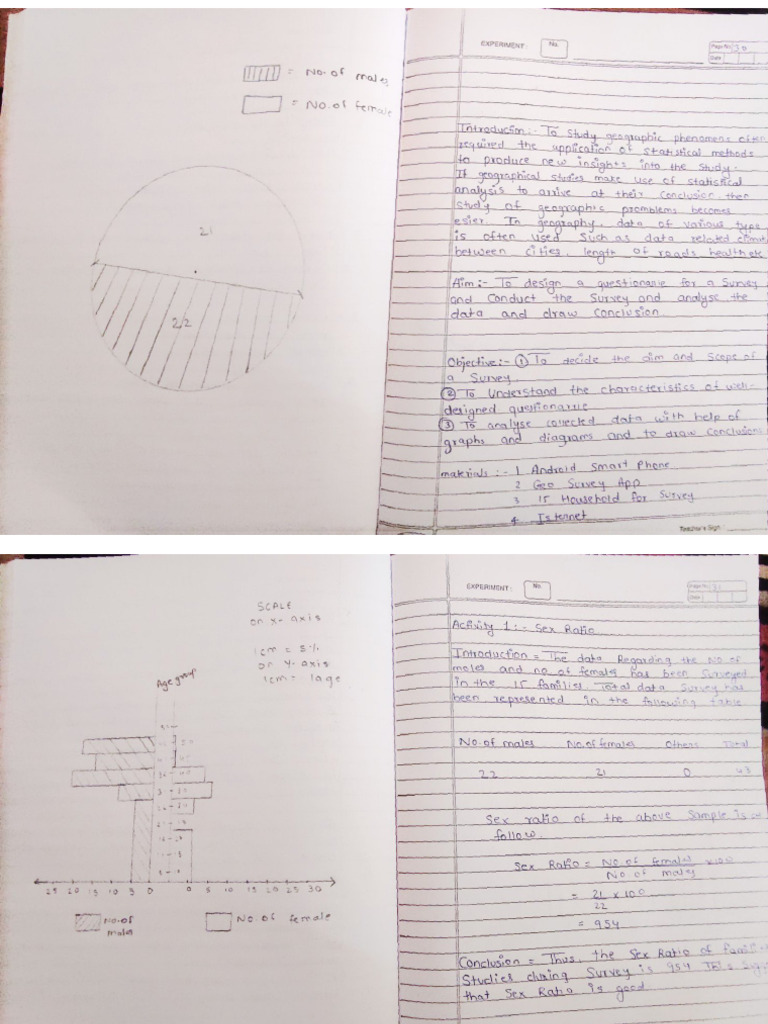 = No. of males
= No. of female
21
22
EXPERIMENT :
No.
Page No. 30
Date
Introduction :- To study geographic phenomens often
required the application of statistical methods
to produce new insights into the study.
If geographical studies make use of statistical
analysis to arrive at their conclusion, then
study of geographis promblems becomes
esier. In geography, data of various type
is often used such as data related climat
between cities, length of roads health etc
Aim :- To design a questionarie for a Survey
and Conduct the Survey and analyse the
data and draw Conclusion
Objective :- ① To decide the aim and Scope of
a Survey
② To Understand the characteristics of well-
designed questionarrie
③ To analyse collected data with help of
graphs and diagrams and to draw Conclusions
materials :- 1 Android Smart Phone
2 Geo Survey App
3 15 Household for Survey
4. Internet
Teacher's Sign :
SCALE
on x-axis
1cm = 5%
on Y-axis
1cm = 1age
Age group
25 20 15 10 5 0 0 5 10 15 20 25 30
No. of
males
No. of female
EXPERIMENT :
No.
Page No. 31
Date
Activity 1 :- Sex Ratio
Introduction = The data Regarding the No of
males and no. of females has been Surveyed
in the 15 families Total data Survey has
been represented in the following table
No. of males No. of females Others Total
22 21 0 43
Sex ratio of the above Sample is as
follow.
Sex Ratio = No. of females x100
No of males
= 21 x 100
22
= 954
Conclusion = Thus, the Sex Ratio of famili
Studies during Survey is 954 This Sign
that Sex Ratio is good